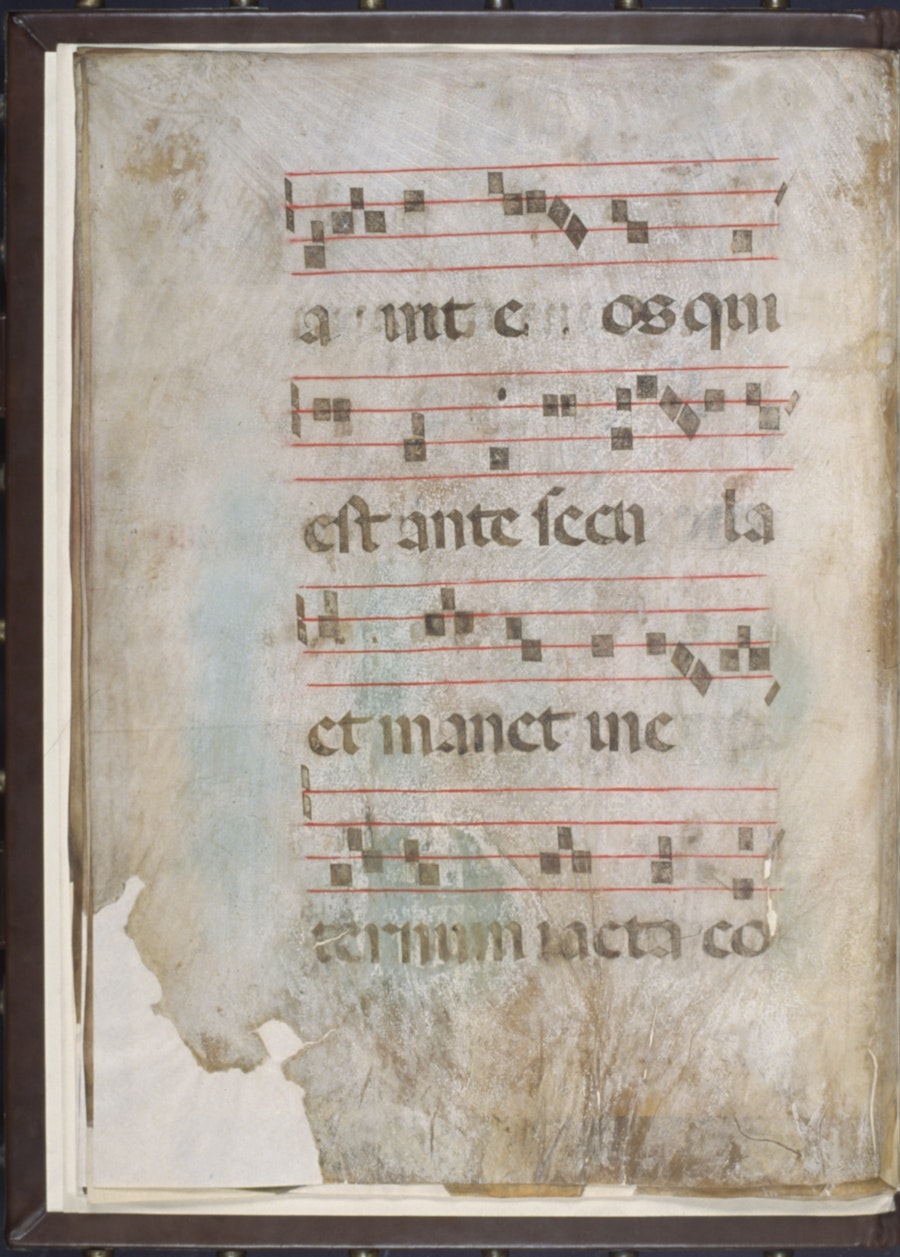 a int e os qui
est ante secu la
et manet in e
ternum iacta co